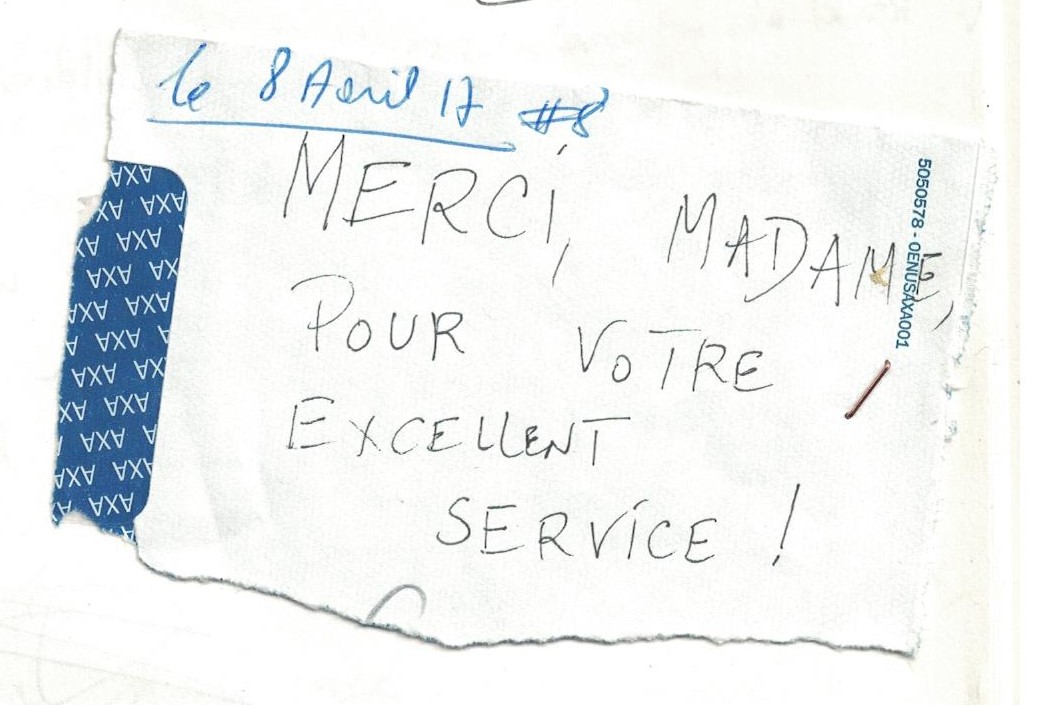 le 8 Avril 17 #8
MERCi, MADAME,
POUR VOTRE
EXCELLENT
SERViCE !
5050578 - 0ENUSAXA001
AXA
AXA AXA
AXA AXA
AXA AXA
AXA AXA
AXA AXA
AXA AXA
AXA AXA
AXA AXA
AXA AXA
AXA AXA
AXA